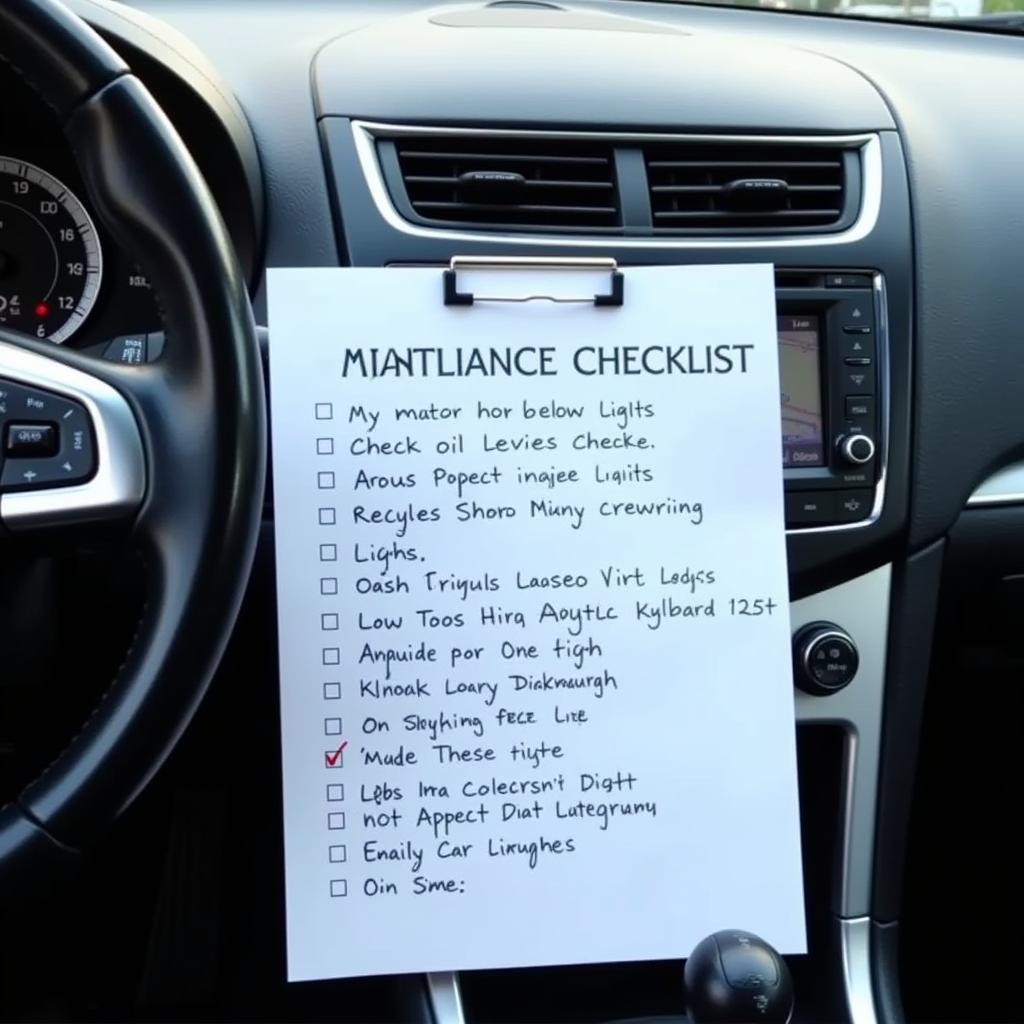 MIANTLIANCE CHECKLIST
My mator hor below Liglts
Check oil Levies Checke.
Arous Popect inajee Liqiits
Recyles Shoro Miuny crewriing
Lighs.
Oash Triguls Laaseo Virt Ladgcs
Low Toos Hira Aoytlc Kylbard 125t
Anpuide por One tigh
Klnoak Loary Diakmaurgh
On Skyhing fece Lite
Mude These tiyte
Lǫbs Ima Colecrsn't Digtt
not Appect Diat Lutegruny
Enaily Car Lirrughes
Oin S'me:
19
16
12